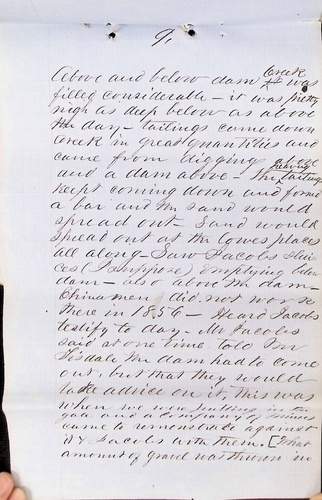 9.
Above and below dam Creek
it was
filled considerable - it was pretty
nigh as deep below as above
the day - tailings came down
Creek in great quantities and
came from digging above
and a dam above - the tailings
kept coming down and formed
a bar and the sand would
spread out - Sand would
spread out at the lowest places
all along - Saw Jacobs Slui-
ces (I suppose) emptying below
dam - also above the dam -
Chinamen did not work
there in 1856 - Heard Jacobs
testify to day - Mr Jacobs
said at one time told Mr
Tisdale the dam had to come
out, but that they would
take advice on it, this was
when we were putting in the
and a company of miners
came to remonstrate against
it & Jacobs with them. [That
amount of gravel was thrown in